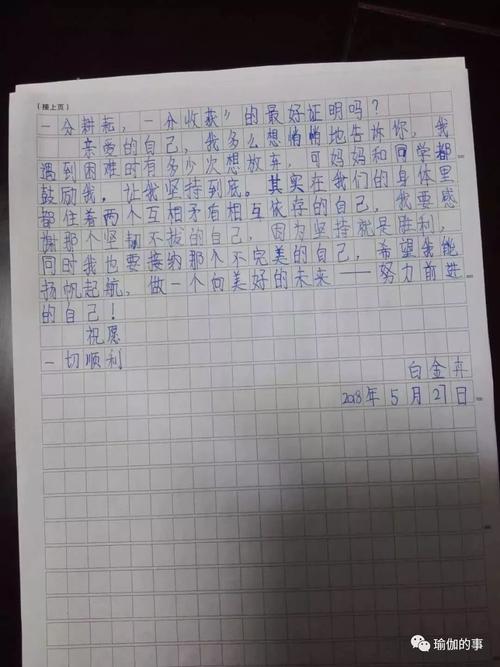 (接上页)
一分耕耘，一分收获”的最好证明吗？
亲爱的自己，我多么想怕怕地告诉你，我
遇到困难时有多少次想放弃，可妈妈和同学都
鼓励我，让我坚持到底。其实在我们的身体里
都住着两个互相矛盾相互依存的自己，我要感
谢那个坚韧不拔的自己，因为坚持就是胜利，
同时我也要接纳那个不完美的自己，希望我能
扬帆起航，做一个向美好的未来——努力前进
的自己！
祝愿
一切顺利
白金卉
2018年5月27日
瑜伽的事